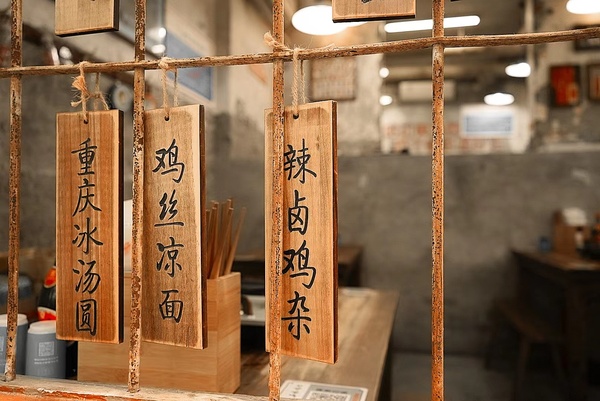 重庆冰汤圆
鸡丝凉面
辣卤鸡杂